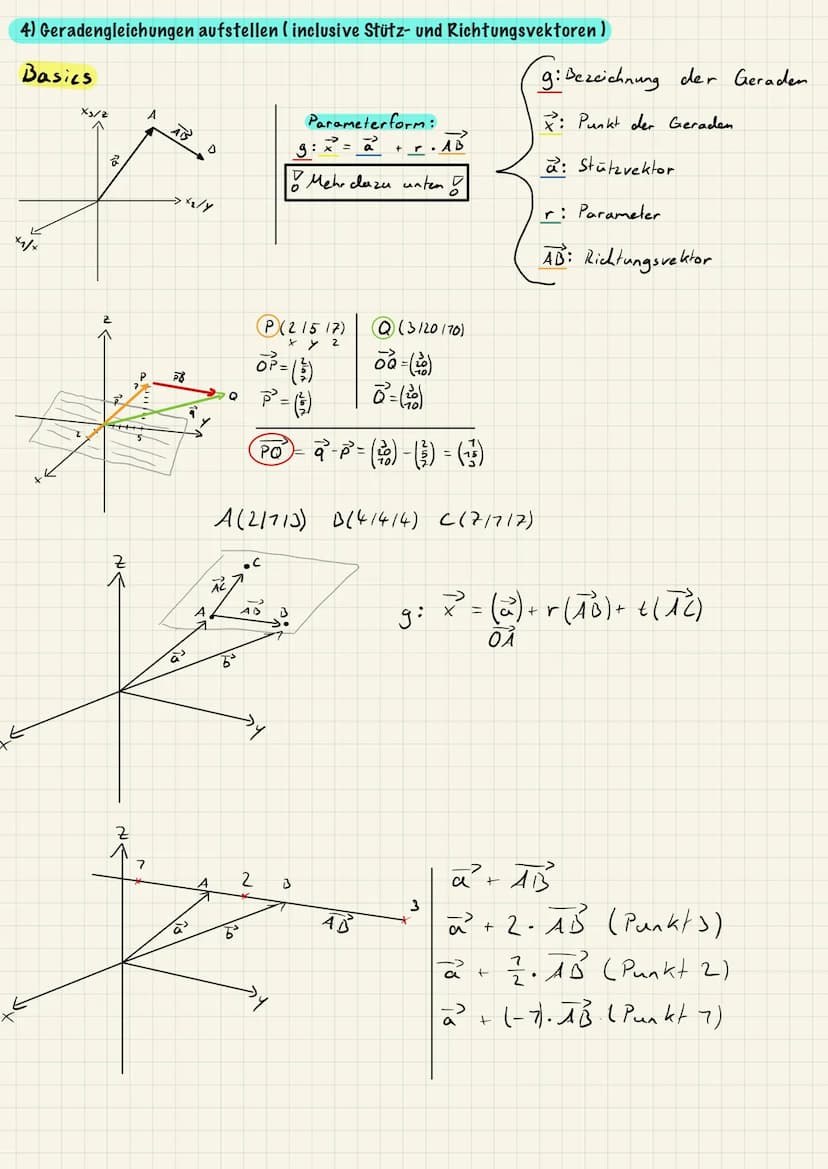 4) Geradengleichungen aufstellen ( inclusive Stütz- und Richtungsvektoren )
Basics
x₃/z
A
AB→
B
a→
x₂/y
x₁/x
Parameterform:
g: x→ = a→ + r · AB→
! Mehr dazu unten !
g: Bezeichnung der Geraden
x→: Punkt der Geraden
a→: Stützvektor
r: Parameter
AB→: Richtungsvektor
z
P
7
PQ→
Q
p→
q→
y
2
5
x
P(2/5/7)
x y z
OP→ = (2 5 7)
p→ = (2 5 7)
Q(3/20/10)
OQ→ = (3 20 10)
Q→ = (3 20 10)
PQ→ = q→ - p→ = (3 20 10) - (2 5 7) = (1 15 3)
A(2/1/3) B(4/4/4) C(7/7/7)
z
C
AC→
A
AB→
B
a→
b→
x
y
g: x→ = (a→) + r(AB→) + t(AC→)
OA→
z
1
A
2
B
3
AB→
a→
b→
x
y
a→ + AB→
a→ + 2 · AB→ (Punkt 3)
a→ + 1/2 · AB→ (Punkt 2)
a→ + (-1) · AB→ (Punkt 1)